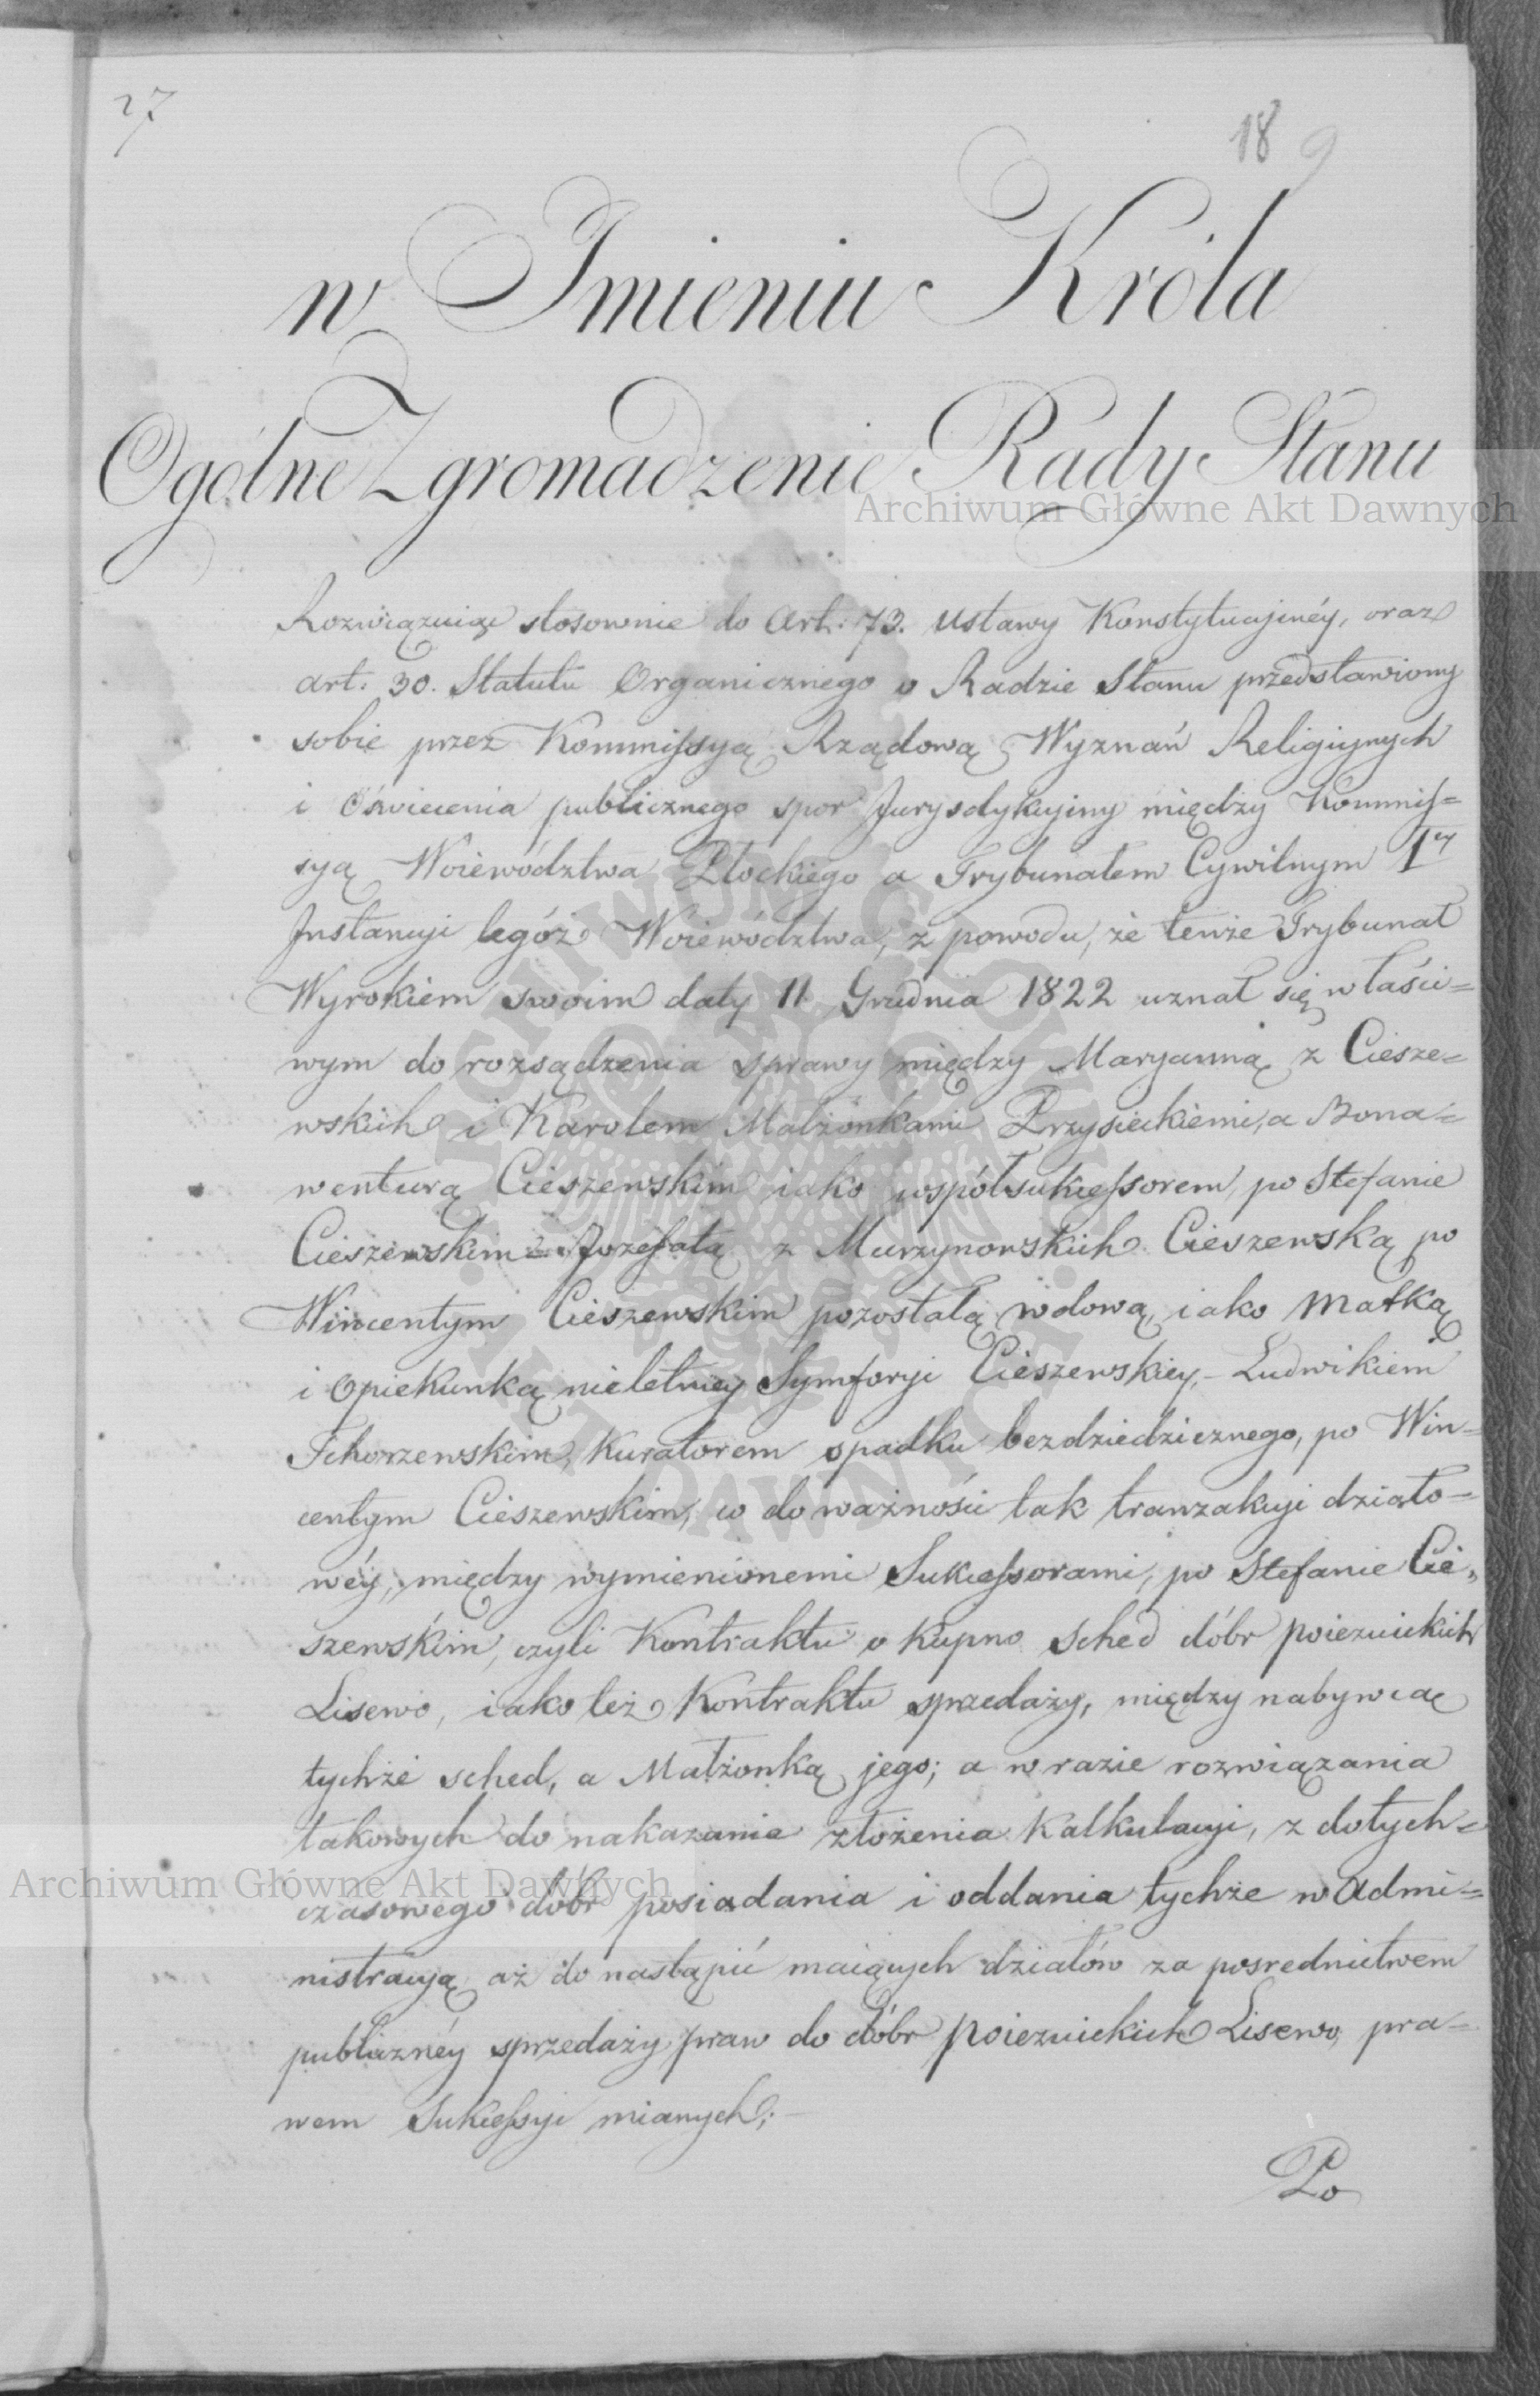 27
18 9
w Imieniu Króla
Ogólne Zgromadzenie Rady Stanu
Archiwum Główne Akt Dawnych
Rozwiązuiąc stosownie do Art: 73. Ustawy Konstytucyinéy, oraz
art. 30. Statutu Organicznego o Radzie Stanu przedstawiony
sobie przez Kommissyą Rządową Wyznań Religiynych
i Oświecenia publicznego spor Jurysdykcyiny między Kommis=
syą Woiewództwa Płockiego a Trybunałem Cywilnym Iey
Instancyi tegóż Woiewództwa, z powodu, że tenże Trybunał
Wyrokiem swoim daty 11. Grudnia 1822 uznał się właści=
wym do rozsądzenia sprawy między Maryanną z Ciesze=
wskich i Karolem Małżonkami Przysieckiemi, a Bona=
wenturą Cieszewskim iako współsukcessorem, po Stefanie
Cieszewskim = Jozefatą z Murzynowskich Cieszewską po
Wincentym Cieszewskim pozostałą wdową, iako Matką
i Opiekunką nieletniey Symforyi Cieszewskiey, – Ludwikiem
Tchorzewskim, Kuratorem spadku bezdziedzicznego, po Win=
centym Cieszewskim, co do ważności tak tranzakcyi działo=
wéy, między wymienionemi Sukcessorami, po Stefanie Cie„
szewskim, czyli Kontraktu o Kupno sched dóbr poiezuickich
Lisewo, iako też Kontraktu sprzedaży, między nabywcą
tychże sched, a Małżonką jego; a w razie rozwiązania
takowych do nakazania złożenia Kalkulacyi, z dotych=
czasowego dóbr posiadania i oddania tychże w Admi=
Archiwum Główne Akt Dawnych
nistracyą, aż do nastąpić maiących działów za posrednictwem
publicznéy sprzedaży praw do dóbr poiezuickich Lisewo, pra=
wem Sukcessyi mianych; –
Po
ARCHIWUM GŁÓWNE AKT DAWNYCH